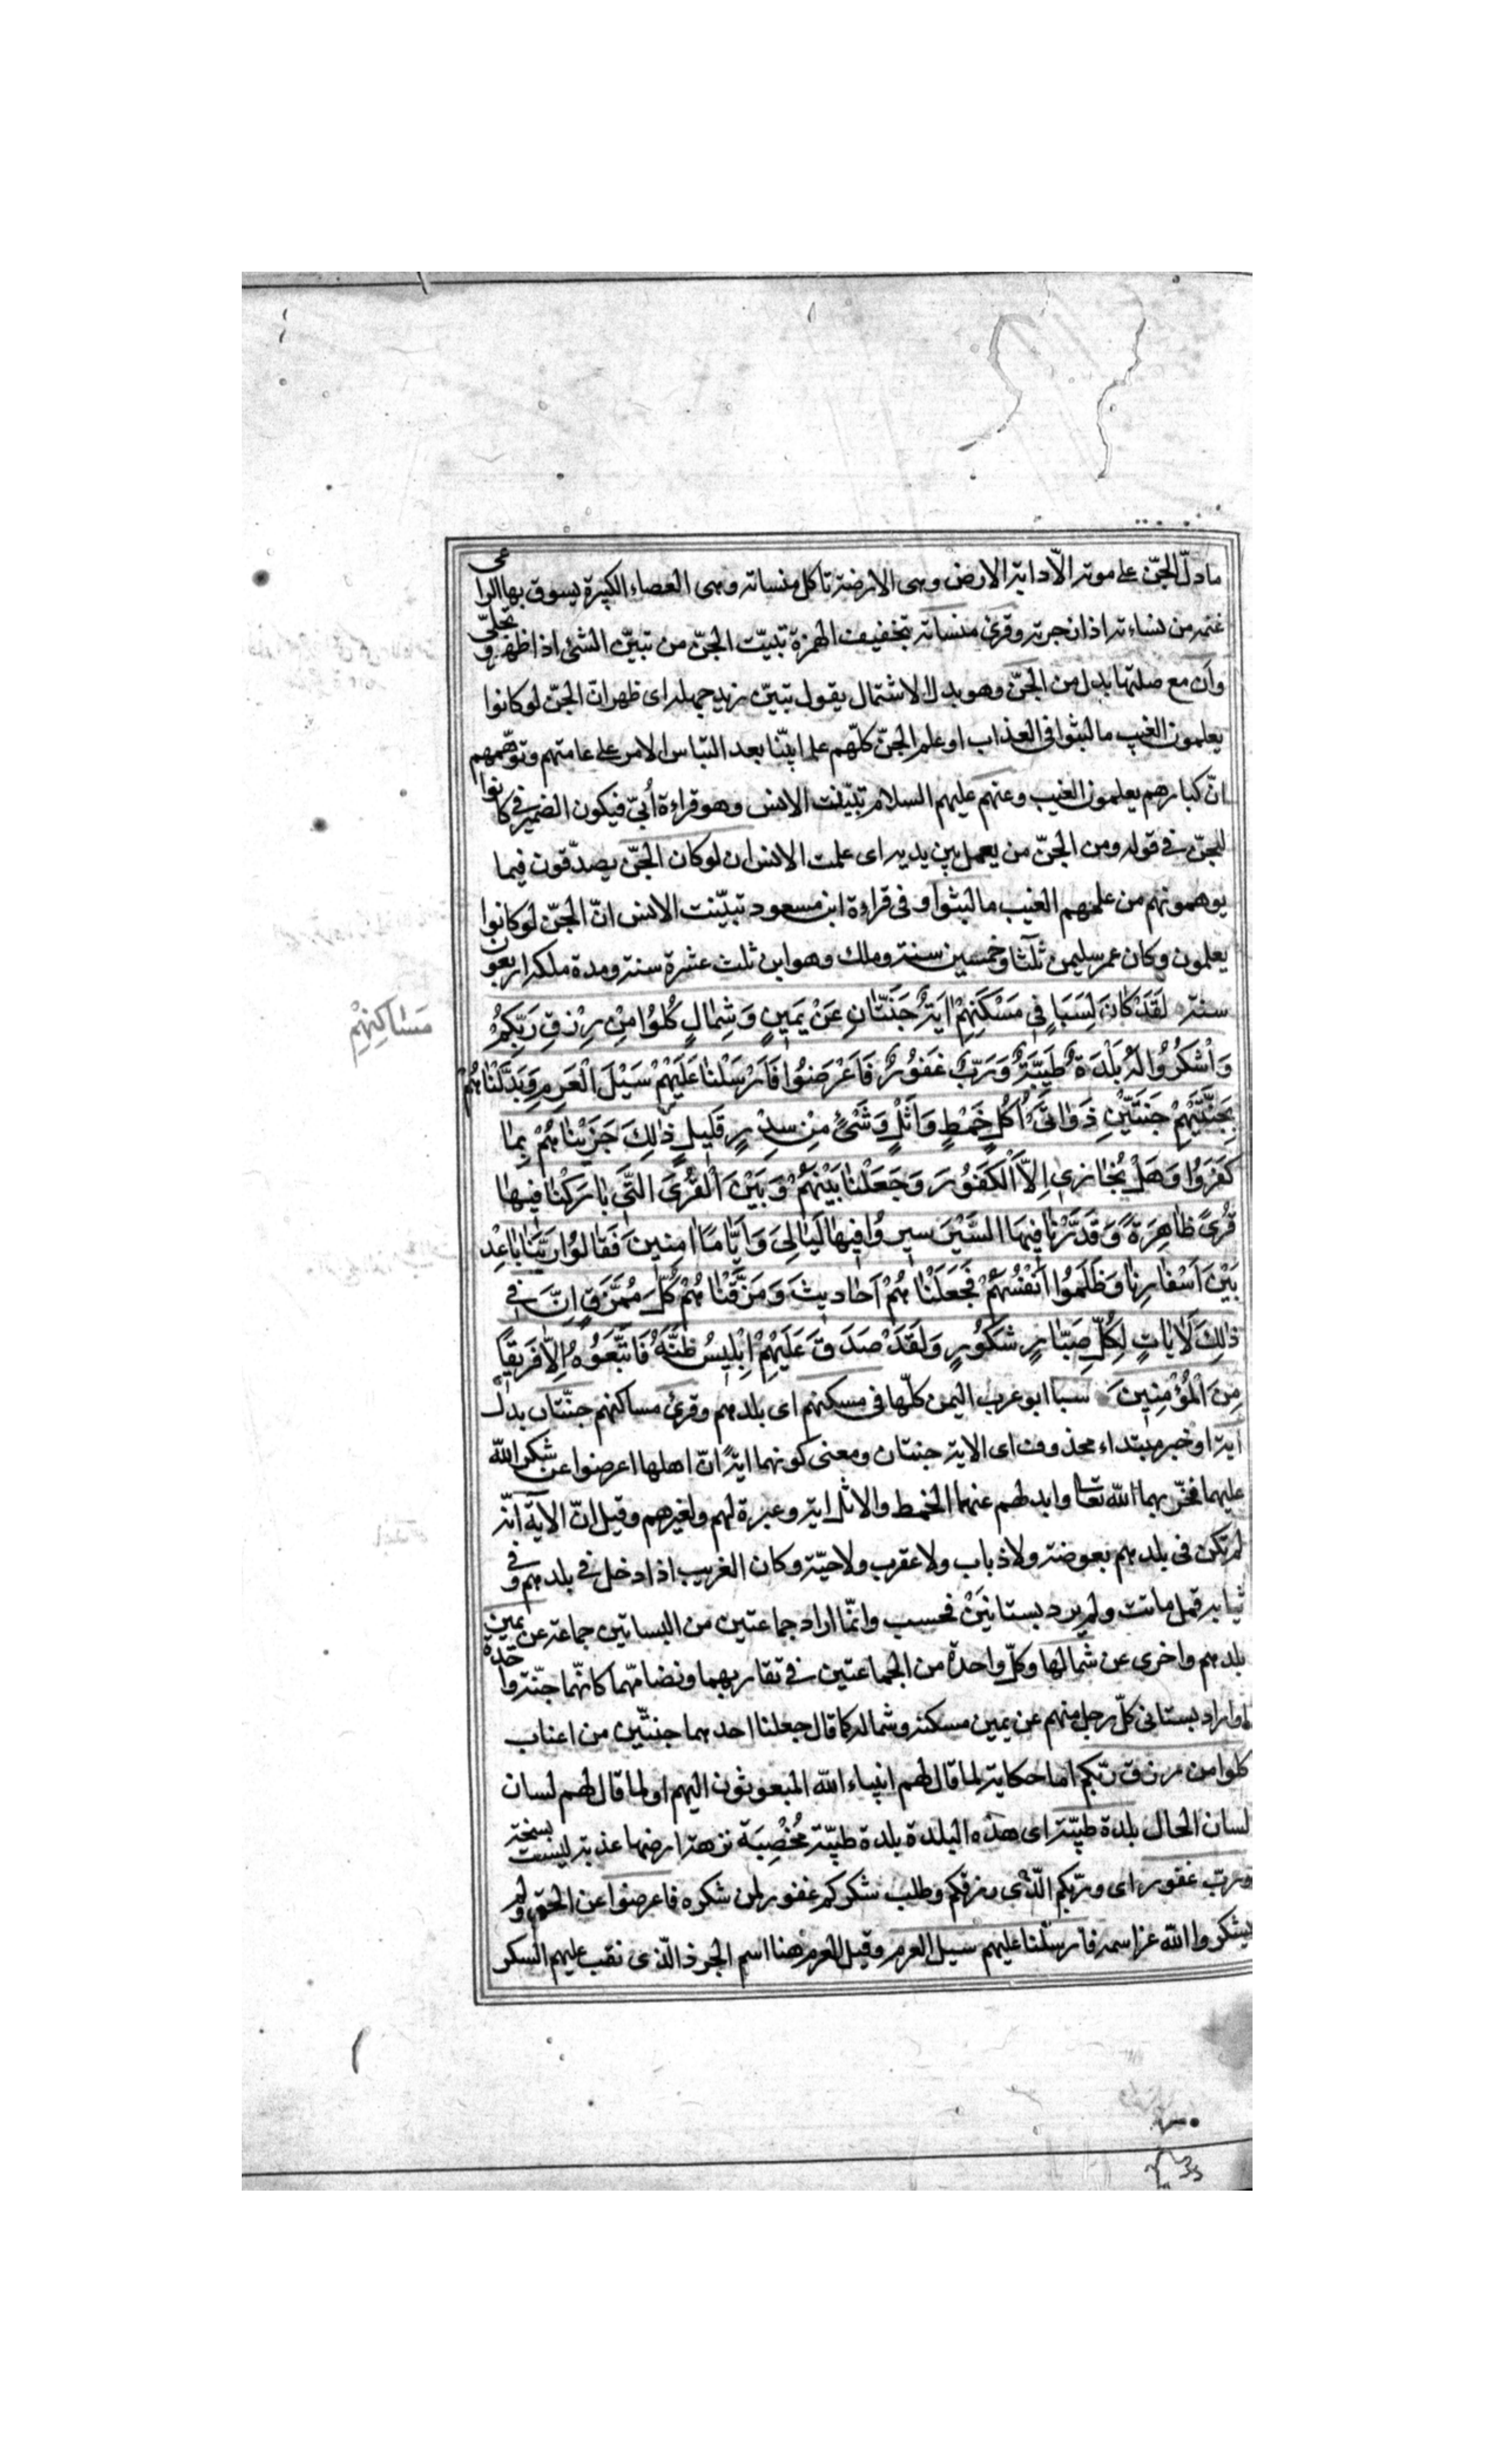 ما دلّ الجنّ على موته الّا دابة الارض وهى الارضة تاكل منساته وهى العصاء الكبيرة يسوق بها الراعى
غنمه من نساءته اذا زجرته وقرئ منساته بتخفيف الهمزة تبيّت الجنّ من تبيّن الشئ اذا ظهر وتجلّى
وأن مع صلتها بدل من الجنّ وهو بدل الاشتمال يقول تبيّن زيد جهله اى ظهر انّ الجنّ لو كانوا
يعلمون الغيب ما لبثوا فى العذاب او علم الجنّ كلّهم علما بيّنا بعد التباس الامر على عامتهم وتوهّمهم
انّ كبارهم يعلمون الغيب وعنهم عليهم السلام تبيّنت الانس وهو قراءة أبىّ فيكون الضمير في كانوا
للجنّ في قوله ومن الجنّ من يعمل بين يديه اى علمت الانس ان لو كان الجنّ يصدّقون فيما
يوهمونهم من علمهم الغيب ما لبثوا وفى قراءة ابن مسعود تبيّنت الانس انّ الجنّ لو كانوا
يعلمون وكان عمر سليمن ثلثا وخمسين سنة وملك وهو ابن ثلث عشرة سنة ومدة ملكه اربعون
سنة لَقَدْ كَانَ لِسَبَاٍ فِى مَسْكَنِهِمْ ايَةٌ جَنَّتَانِ عَنْ يَمِينٍ وَشِمَالٍ كُلُوا مِنْ رِزْقِ رَبِّكُمْ
مَسَاكِنِهِمْ
وَاشْكُرُوا لَهُ بَلْدَةٌ طَيِّبَةٌ وَرَبٌّ غَفُورٌ فَاَعْرَضُوا فَاَرْسَلْنَا عَلَيْهِمْ سَيْلَ الْعَرِمِ وَبَدَّلْنَاهُمْ
بِجَنَّتَيْهِمْ جَنَّتَيْنِ ذَوَاتَىْ اُكُلٍ خَمْطٍ وَاَثْلٍ وَشَىْءٍ مِنْ سِدْرٍ قَلِيلٍ ذٰلِكَ جَزَيْنَاهُمْ بِمَا
كَفَرُوا وَهَلْ يُجَازى اِلَّا الْكَفُورَ وَجَعَلْنَا بَيْنَهُمْ وَبَيْنَ الْقُرَى الَّتِى بَارَكْنَا فِيهَا
قُرًى ظَاهِرَةً وَقَدَّرْنَا فِيهَا السَّيْرَ سِيرُوا فِيهَا لَيَالِىَ وَاَيَّامًا امِنِينَ فَقَالُوا رَبَّنَا بَاعِدْ
بَيْنَ اَسْفَارِنَا وَظَلَمُوا اَنْفُسَهُمْ فَجَعَلْنَاهُمْ اَحَادِيثَ وَمَزَّقْنَاهُمْ كُلَّ مُمَزَّقٍ اِنَّ فِى
ذٰلِكَ لَايَاتٍ لِكُلِّ صَبَّارٍ شَكُورٍ وَلَقَدْ صَدَقَ عَلَيْهِمْ اِبْلِيسُ ظَنَّهُ فَاتَّبَعُوهُ اِلَّا فَرِيقًا
مِنَ الْمُؤْمِنِينَ سبا ابو عرب اليمن كلّها فى مسكنهم اى بلدهم وقرئ مساكنهم جنّتان بدل
اية او خبر مبتداء محذوف اى الاية جنتان ومعنى كونهما ايةً انّ اهلها اعرضوا عن شكر الله
عليهما فخرّبهما الله تعا وابدلهم عنهما الخمط والاثل اية وعبرة لهم ولغيرهم وقيل انّ الآية انّه
لم تكن فى بلدهم بعوضة ولا ذباب ولا عقرب ولا حيّة وكان الغريب اذا دخل في بلدهم وفى
ثيابه قمل ماتت ولم يرد بستانَيْن فحسب وانّما اراد جماعتين من البساتين جماعة عن يمين
بلدهم واخرى عن شمالها وكلّ واحدة من الجماعتين في تقاربهما وتضامّهما كانّهما جنّة واحدة
او اراد بستانى كلّ رجل منهم عن يمين مسكنه وشماله كما قال جعلنا احدهما جنتّين من اعناب
كلوا من رزق ربّكم اما حكاية لما قال لهم انبياء الله المبعوثون اليهم او لما قال لهم لسان
لسان الحال بلدة طيّبة اى هذه البلدة بلدة طيّبة مُخْصِبَة نزهة ارضها عذبة ليست بسبخة
وربّ غفور اى وربّكم الّذى رزقكم وطلب شكركم غفور لمن شكره فاعرضوا عن الحق ولم
يشكروا الله عز اسمه فارسلنا عليهم سيل العرم وقيل العرم هنا اسم الجرذ الّذى نقب عليهم السكر